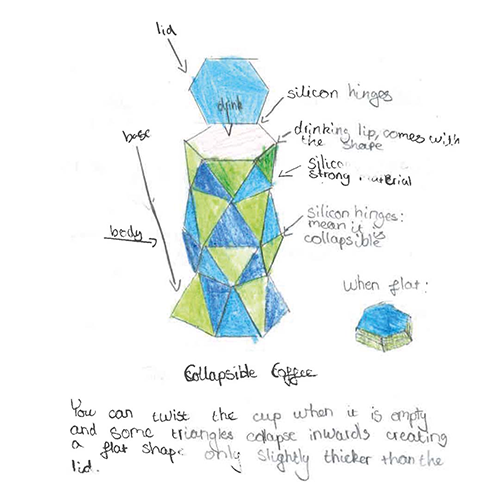 lid
drink
silicon hinges
base
drinking lip, comes with
the shape
silico
strong material
silicon hinges:
mean it is
collapsible
body
when flat:
Collapsible Coffee
You can twist the cup when it is empty
and some triangles collapse inwards creating
a flat shape only slightly thicker than the
lid.